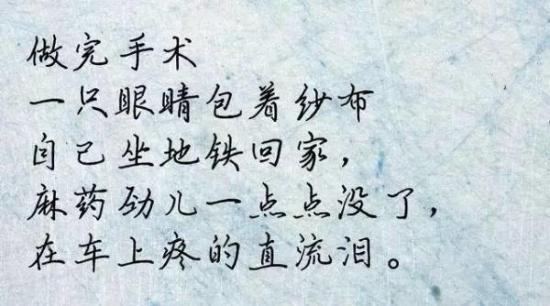 做完手术
一只眼睛包着纱布
自己坐地铁回家，
麻药劲儿一点点没了，
在车上疼的直流泪。